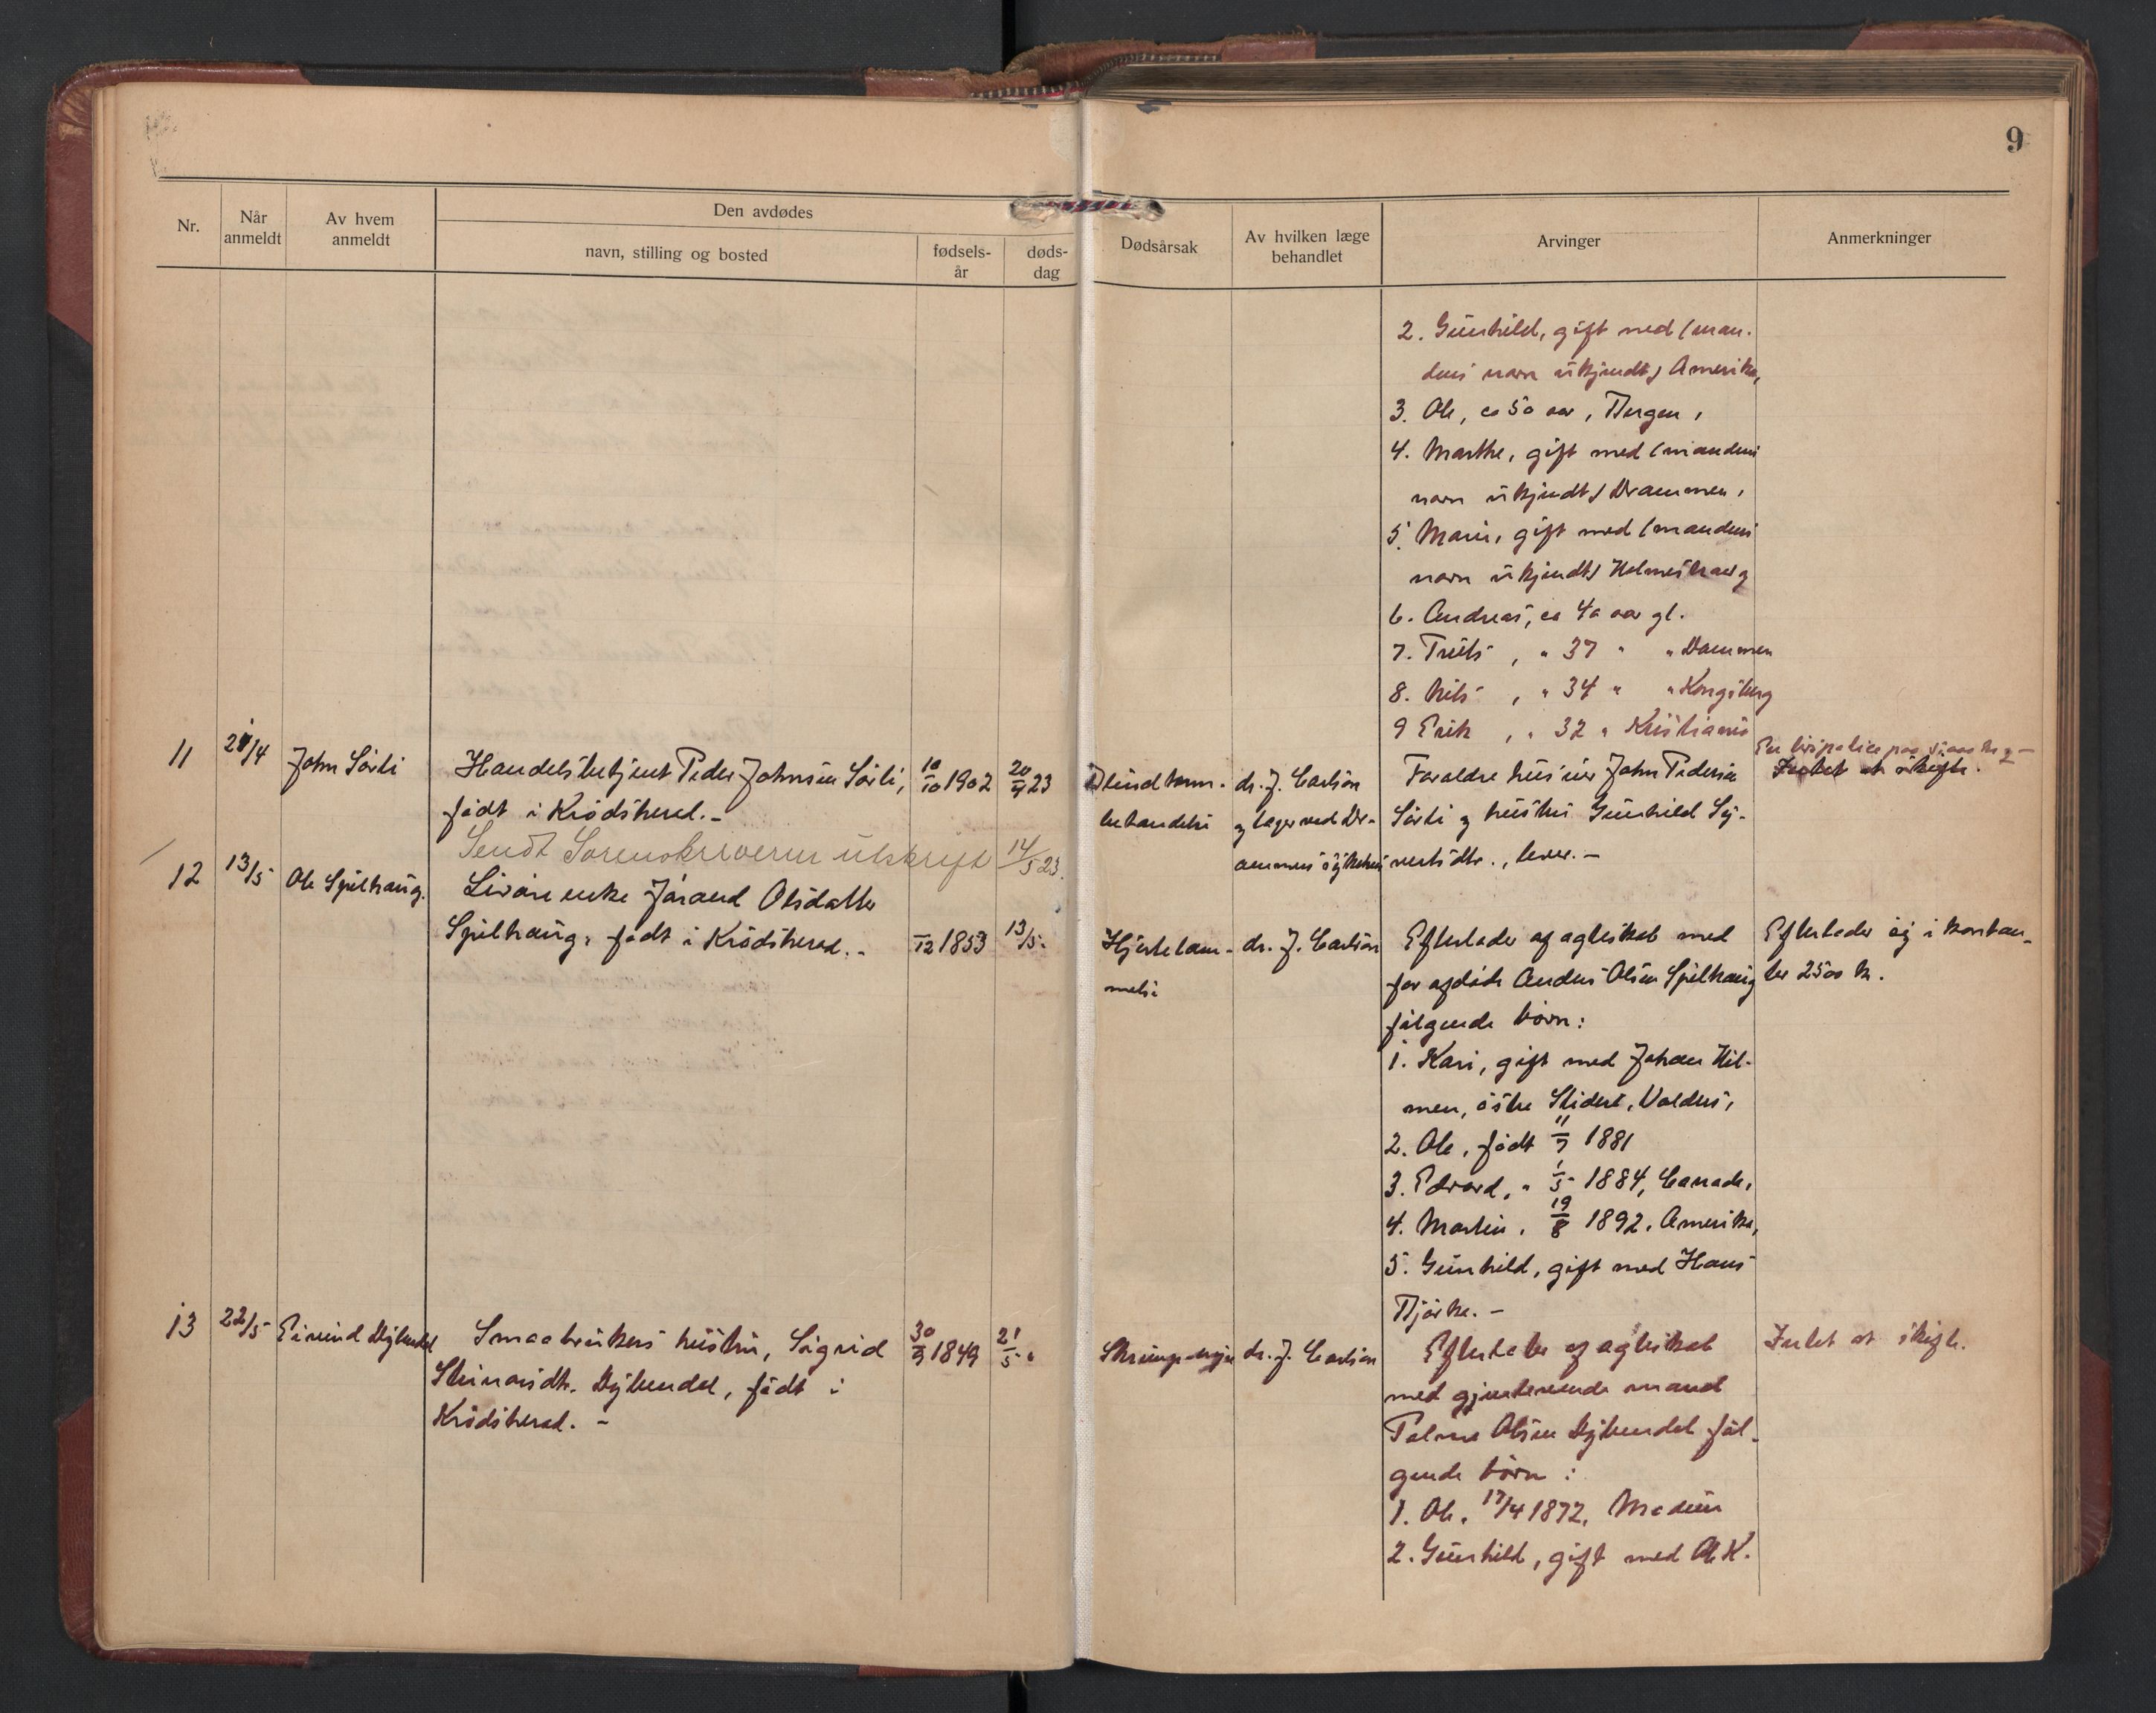 9
Nr.
Når
anmeldt
Av hvem
anmeldt
Den avdødes
navn, stilling og bosted
fødsels-
år
døds-
dag
Dødsårsak
Av hvilken læge
behandlet
Arvinger
Anmerkninger
2. Gunhild, gift med (man-
dens navn ukjendt) Amerika,
3. Ole, ca 50 aar, Bergen,
4. Marthe, gift med (mandens
navn ukjendt) Drammen,
5. Marie, gift med (mandens
navn ukjendt) Holmestrand
6. Andreas, ca 40 aar gl.
7. Truls, " 37 " " Dammen
8. Nils, " 34 " " Kongsberg
9 Erik, " 32 " Kristiania
11
21/4
John Sørli
Handelsbetjent Peder Johnsen Sørli,
født i Krødsherad.-
10/10 1902
20/4 23
Blindtarm-
betændelse
dr. J. Carlson
og læger ved Dr-
ammens sykehus
Foræltre husmer John Pedersen
Sørli og hustru Gunhild Sy-
vertsdtr., lever.-
En livspolice paa
Intet at skifte.
Sendt Sorenskriveren utskrift 14/5 23.
12
13/5
Ole Spilhaug.
Livøre enke Jørand Olsdatter
Spilhaug, født i Krødsherad.-
/12 1853
13/5-
Hjertelam-
melse
dr. J. Carlson
Efterlader af ægteskab med
før afdøde Anders Olsen Spilhaug
følgende børn:
1. Kari, gift med Johan Hil-
men, østre Slidre, Valdres,
2. Ole, født 11/7 1881
3. Edvard, " 1/5 1884, Canada,
4. Martin, 19/8 1892, Amerika,
5. Gunhild, gift med Hans
Bjørke.-
Efterlader sig i kontan-
ter 2500 kr.
13
22/5
Eivind Dybendal
Smaabrukers hustru, Sigrid
Steinarsdtr. Dybendal, født i
Krødsherad.-
30/9 1849
21/5 "
Skrumpnyre
dr. J. Carlson
Efterlater af ægteskab
med gjenlevende mand
Palme Olsen Dybendal føl-
gende børn:
1. Ole, 17/4 1872, Modum
2. Gunhild, gift med Ole K.
Intet at skifte.